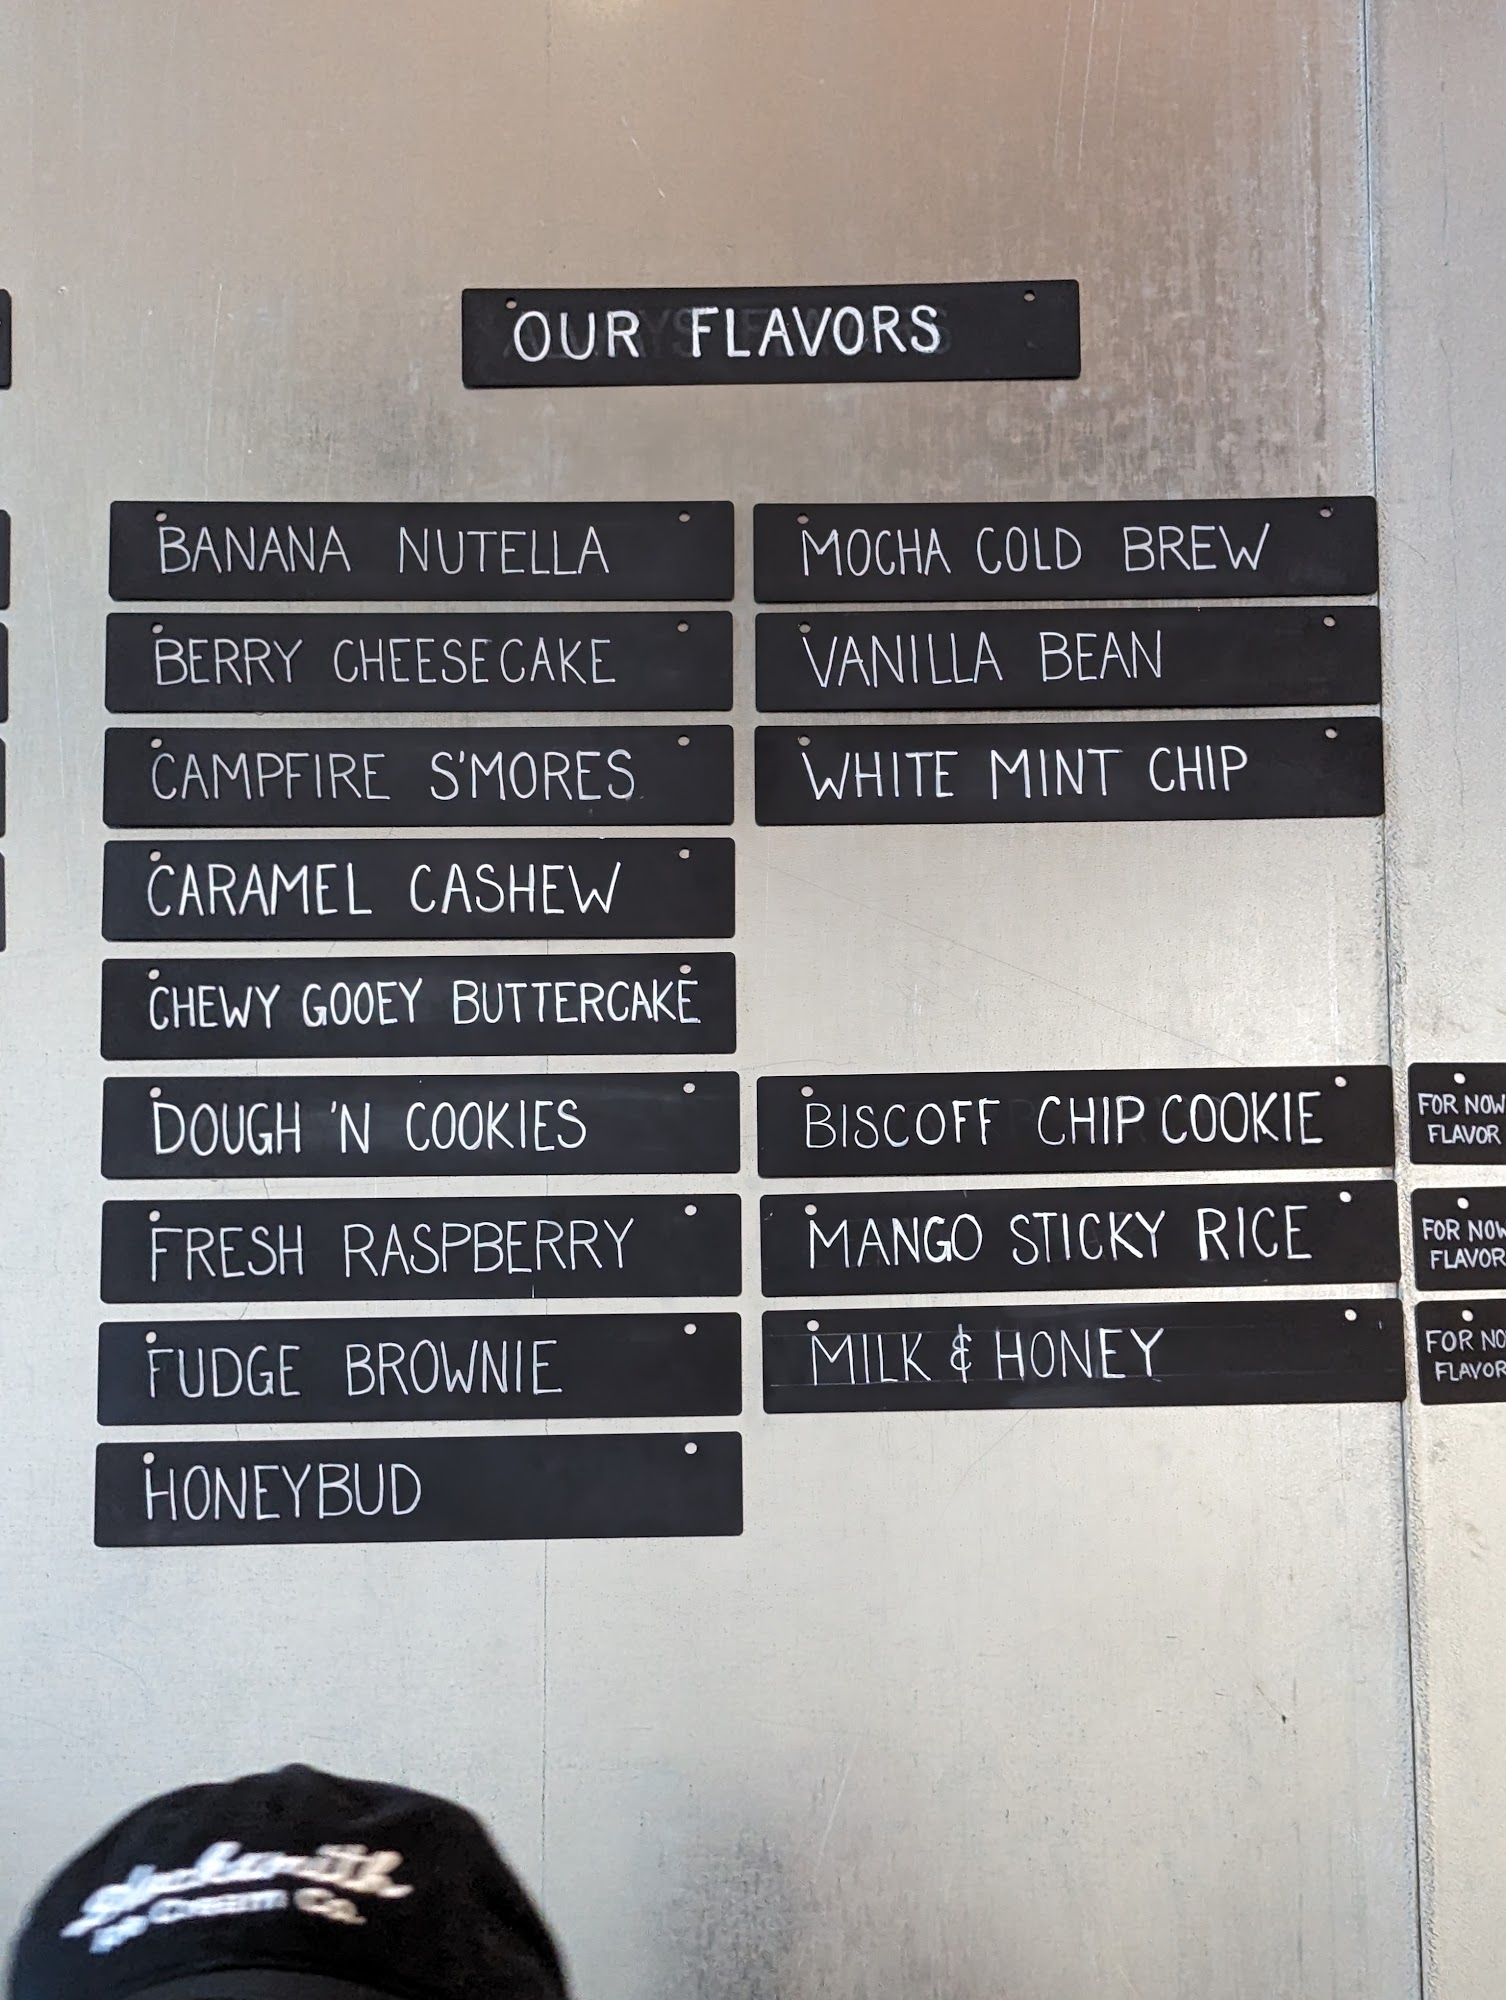 OUR FLAVORS
BANANA NUTELLA
BERRY CHEESECAKE
CAMPFIRE S'MORES
CARAMEL CASHEW
CHEWY GOOEY BUTTERCAKE
DOUGH 'N COOKIES
FRESH RASPBERRY
FUDGE BROWNIE
HONEYBUD
MOCHA COLD BREW
VANILLA BEAN
WHITE MINT CHIP
BISCOFF CHIP COOKIE
FOR NOW
FLAVOR
MANGO STICKY RICE
FOR NOW
FLAVOR
MILK & HONEY
FOR NO
FLAVOR
Cream Co.